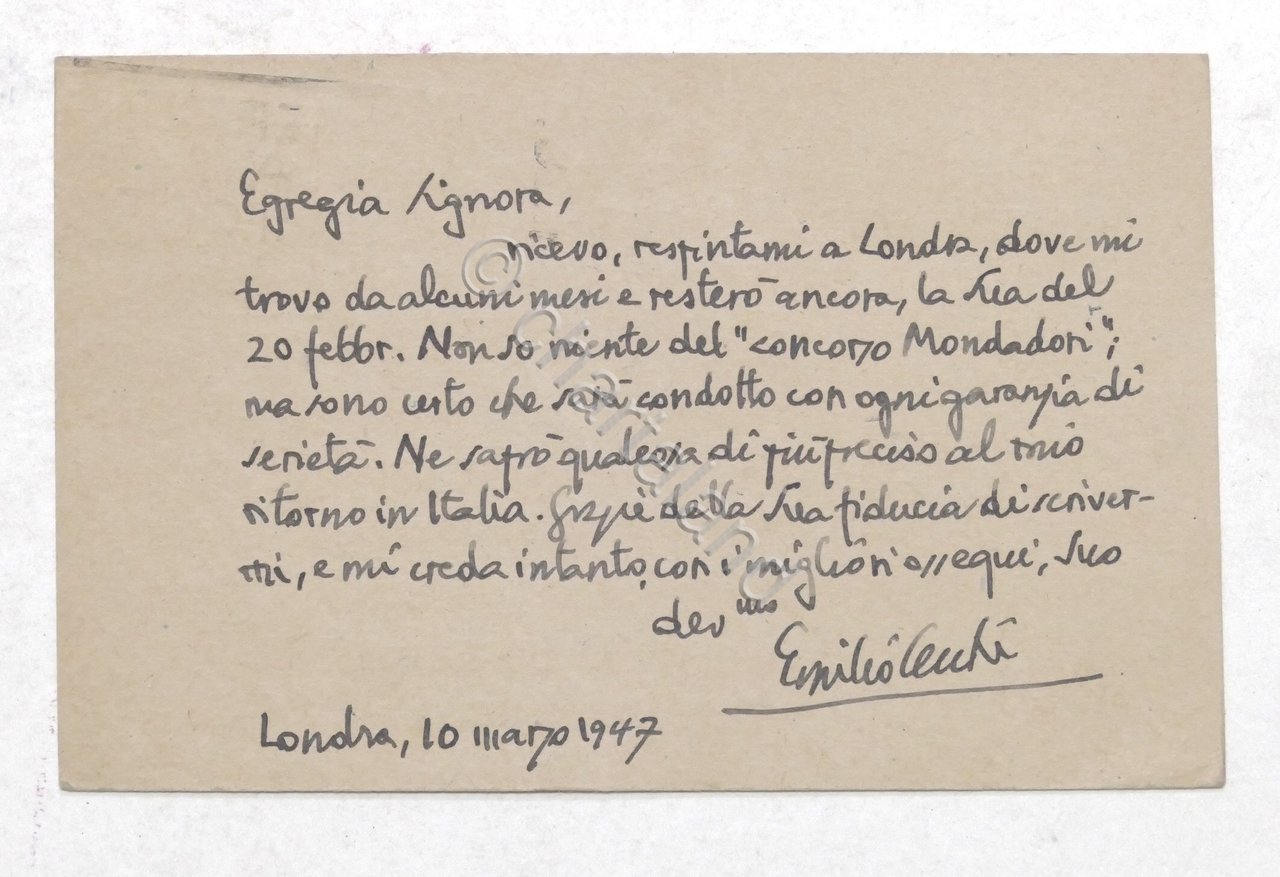 Egregia Signora,
ricevo, respintami a Londra, dove mi
trovo da alcuni mesi e resterò ancora, la Sua del
20 febbr. Non so niente del "concorso Mondadori";
ma sono certo che sarà condotto con ogni garanzia di
serietà. Ne saprò qualcosa di più preciso al mio
ritorno in Italia. Grazie della Sua fiducia di scriver-
mi, e mi creda intanto, con i migliori ossequi, Suo
dev mo
Emilio Cecchi
Londra, 10 marzo 1947
© chartaland